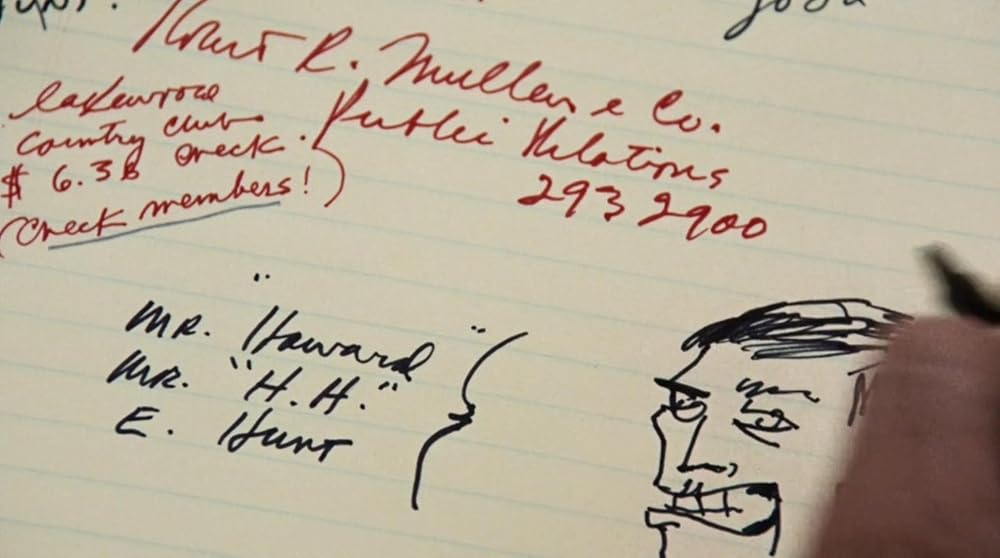 Robert R. Mullen & Co.
Public Relations
293 2900
Lakewood
Country Club
$ 6.3B check.
(Check members!)
Mr. "Howard"
Mr. "H.H."
E. Hunt